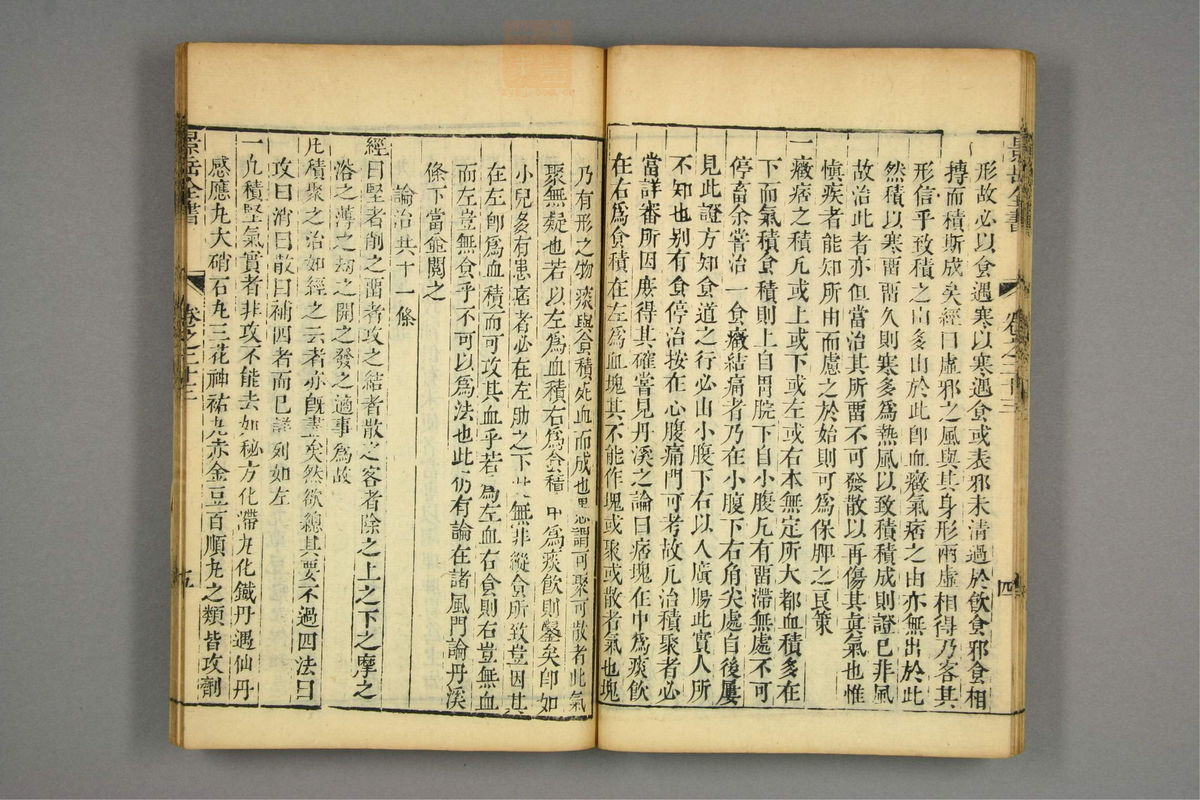 景岳全書
卷之二十三
四
形故必以食遇寒以寒遇食或表邪未清過於飲食邪食相
搏而積斯成矣經曰虛邪之風與其身形兩虛相得乃客其
形信乎致積之由多由於此卽血癥氣痞之由亦無出於此
然積以寒畱畱久則寒多爲熱風以致積積成則證已非風
故治此者亦但當治其所畱不可發散以再傷其眞氣也惟
愼疾者能知所由而慮之於始則可爲保脾之良策
一癥痞之積凡或上或下或左或右本無定所大都血積多在
下而氣積食積則上自胃脘下自小腹凡有畱滯無處不可
停畜余嘗治一食癥結痛者乃在小腹下右角尖處自後屢
見此證方知食道之行必由小腹下右以入廣腸此實人所
不知也別有食停治按在心腹痛門可考故凡治積聚者必
當詳審所因庶得其確嘗見丹溪之論曰痞塊在中爲痰飲
在右爲食積在左爲血塊其不能作塊或聚或散者氣也塊
乃有形之物痰與食積死血而成也愚謂可聚可散者此氣
聚無疑也若以左爲血積右爲食積中爲痰飲則鑿矣卽如
小兒多有患痞者必在左肋之下此無非縱食所致豈因其
在左卽爲血積而可攻其血乎若爲左血右食則右豈無血
而左豈無食乎不可以爲法也此仍有論在諸風門論丹溪
條下當竝閱之
論治共十一條
經曰堅者削之畱者攻之結者散之客者除之上之下之摩之
浴之薄之刼之開之發之適事爲故
凡積聚之治如經之云者亦旣盡矣然欲總其要不過四法曰
攻曰消曰散曰補四者而已詳列如左
一凡積堅氣實者非攻不能去如秘方化滯丸化鐵丹遇仙丹
感應丸大硝石丸三花神祐丸赤金豆百順丸之類皆攻劑
景岳全書
卷之二十三
五